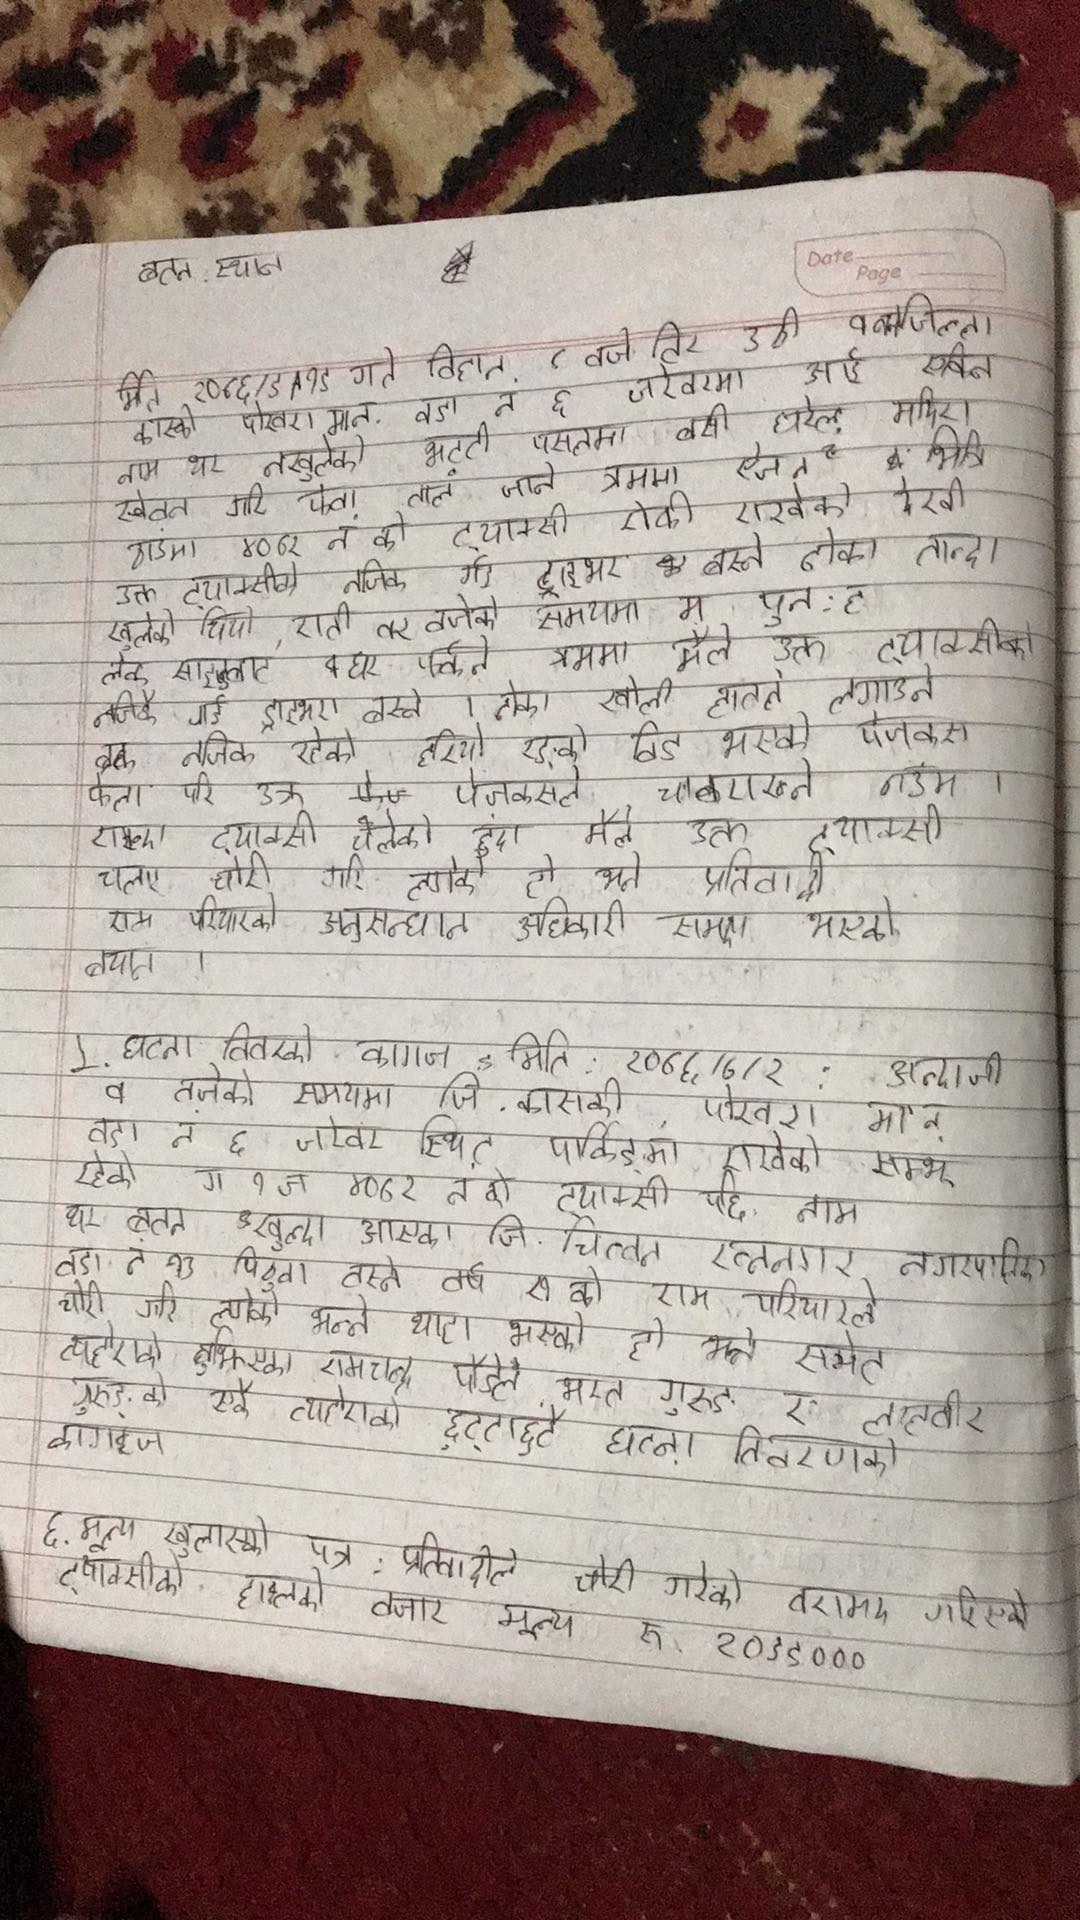 बतन : स्थान
Date
Page
मिति २०६६/ गते विहान ८ वजे तिर उठी जिल्ला
कास्की पोखरा मान. वडा नं ६ जरेवरमा आई
नाम थर नखुलेको भट्टी पसलमा बसी घरेलु मदिरा
सेवन गरि फेवा ताल जाने क्रममा
४०७२ नं को ट्याक्सी रोकी राखेको देखी
उक्त ट्याक्सीको नजिक गई ड्राइभर बस्ने ढोका तान्दा
खुलेको थियो, राती वजेको समयमा म पुन: ह
लेक साइडबाट घर फर्कने क्रममा मैले उक्त ट्याक्सीको
नजिकै गई ड्राइभरा बस्ने । ढोका खोली हातले लगाउने
ब्रेक नजिक रहेको हरियो रङ्को विड भएको पेन्जकस
फेला परि उक्त पेन्जकसले
ट्याक्सी चलेको हुंदा मैले उक्त ट्याक्सी
चलाए चोरी गरि लगेको हो भने प्रतिवादी
राम परियारको अनुसन्धान अधिकारी समक्ष भएको
बयान ।
५. घटना विवरको कागज : मिति : २०६६/७/२ : अन्दाजी
वजेको समयमा जि. कास्की, पोखरा मा न
वडा नं ६ जरेवर स्थित पार्किङ्मा राखेको
रहेको ग १ ज ४०७२ नं को ट्याक्सी पछि नाम
थर बतन खुल्दा आएका जि. चितवन रत्ननगर नगरपालिका
वडा नं १३ पिठुवा बस्ने वर्ष को राम परियारले
चोरी गरि लगेको भन्ने थाहा भएको हो भन्ने समेत
व्यहोराको बुझिएका रामचन्द्र पौडेल भरत गुरुङ र
गुरुङ्को एकै व्यहोराको छुट्टाछुट्टै घटना विवरणको
कागज
६. मूल्य खुलासको पत्र : प्रतिवादीले चोरी गरेको वरामद गरिएको
ट्याक्सीको हालको वजार मूल्य रू.